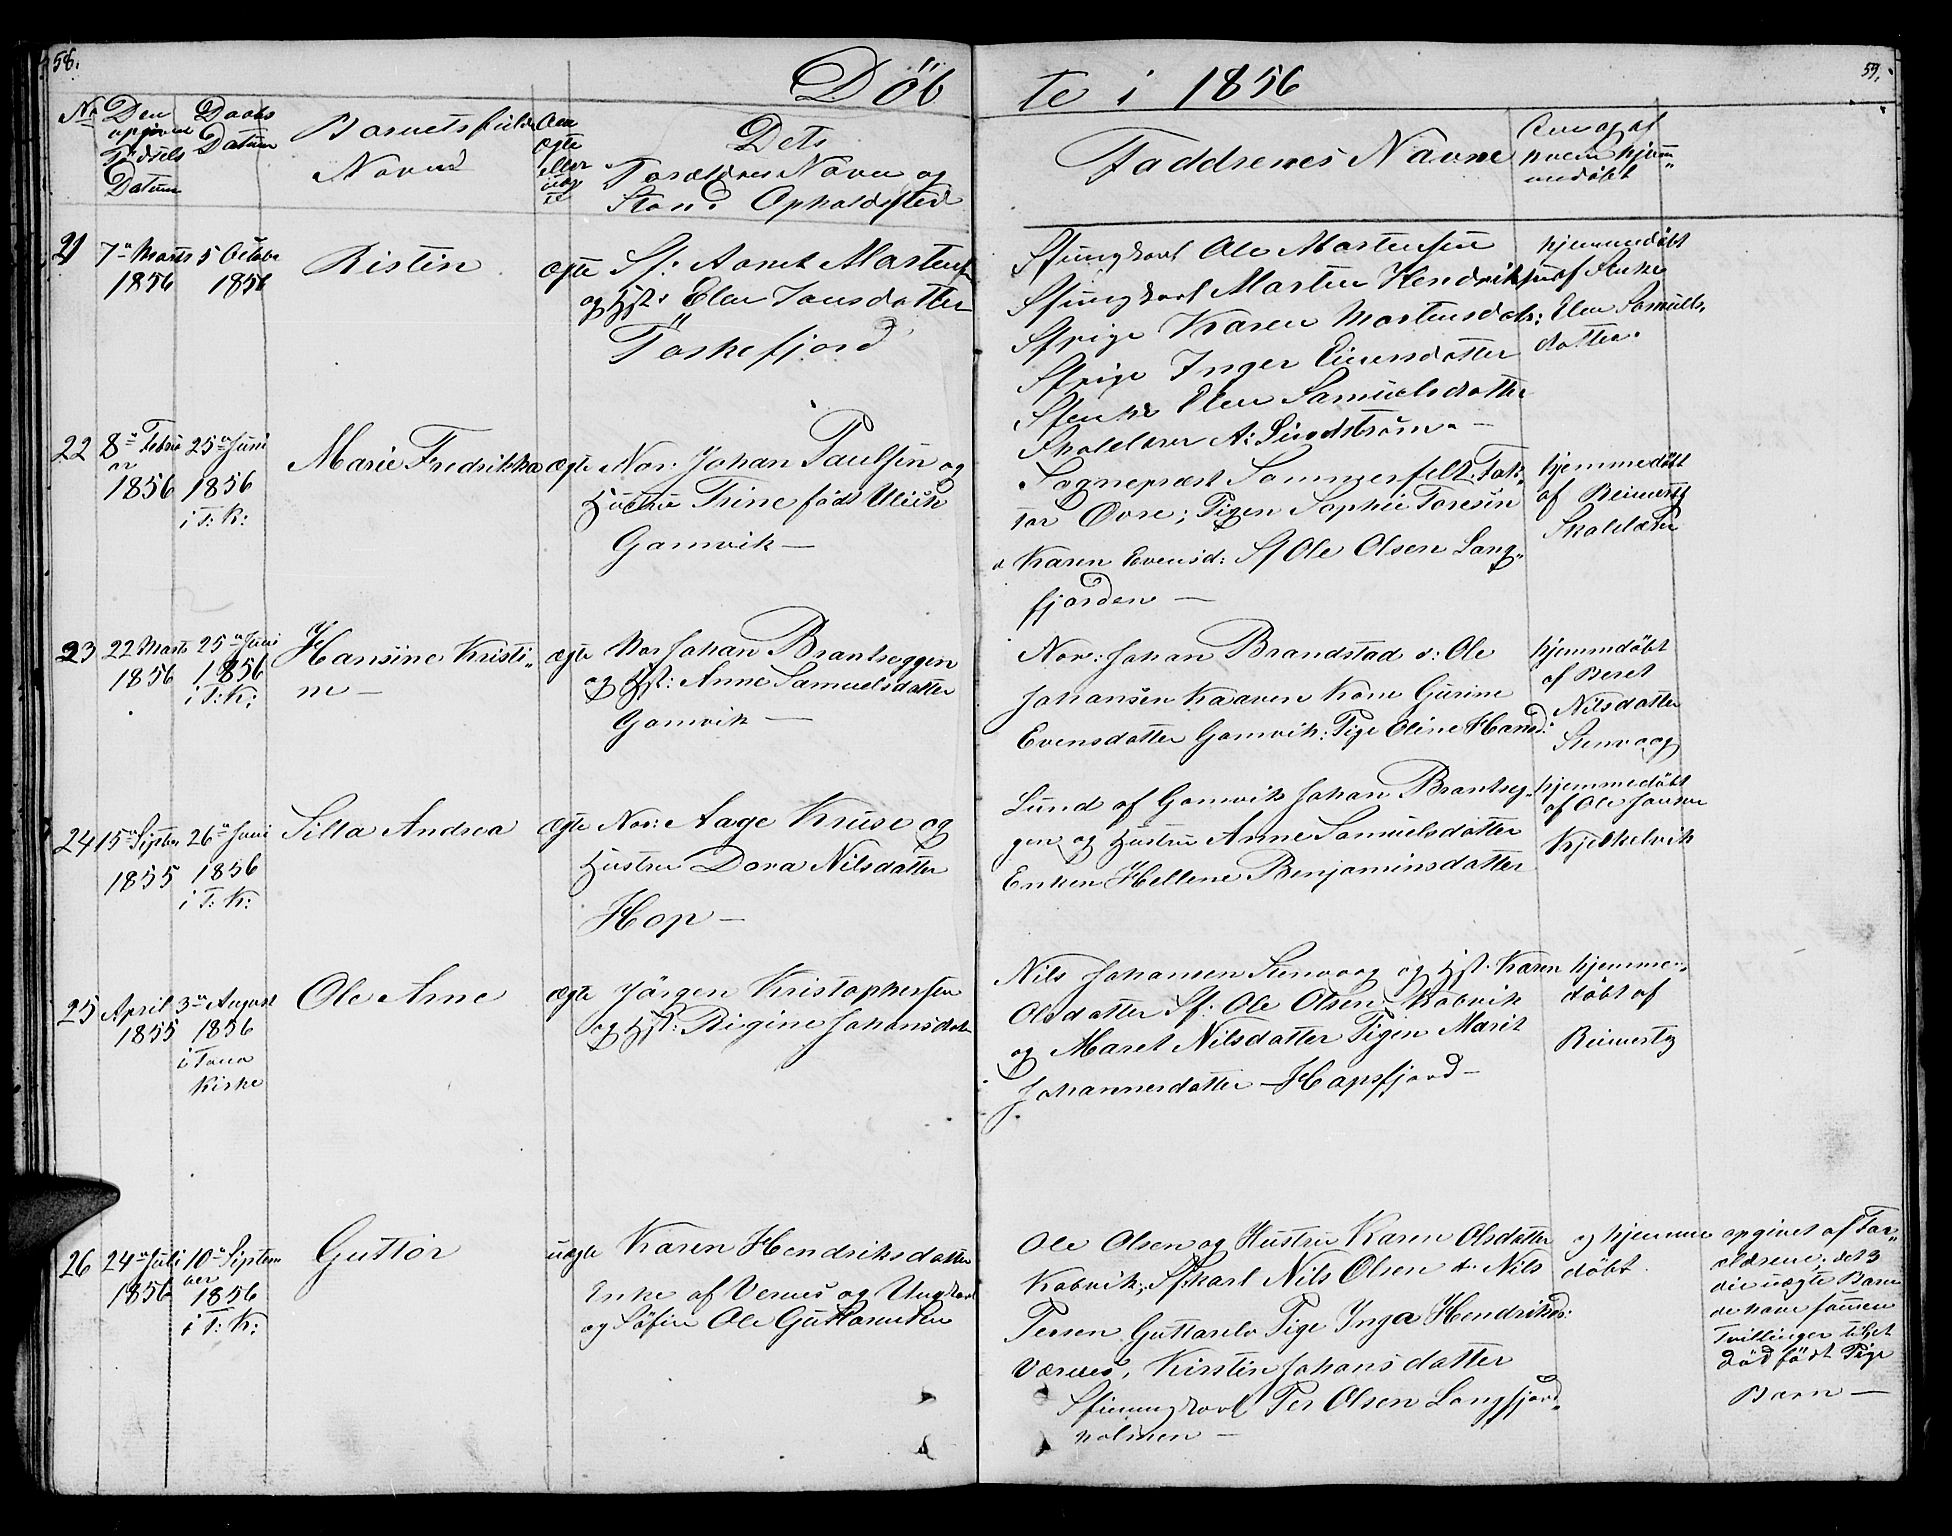 58.
Döb
te i 1856
59.
No
Den
opgivne
Födsels
Datum
Daabs
Datum
Barnets fulde
Navn
Om
ægte
eller
uæg
te
Dets
Forældres Navne og
Stand Opholdssted
Faddrenes Navne
Om og af
hvem hjem"
medöbt
21
7de Marts
1856
5 Octobr
1856
Ristin
ægte
Sf: Amut Martens
og Hst: Elen Jonsdatter
Töskefjord
Sfungkarl Ole Martensen
Sfungkarl Marten Hendriksen
Sfpige Karen Martensdatr:
Sfpige Inger Einersdatter
Sfenke Elen Samuelsdatter
Skolelærer A: Lindström
hjemmedöbt
af Enke
Elen Samuels
datter.
22
8de Febru
ar
1856
25de Juni
1856
i T: K:
Marie Fredrikka
ægte
Nor: Johan Paulsen og
Hustru Trine fød Ulich
Gamvik —
Sognepræst Sommerfelt, Fak"
tor Øvre; Pigen Sophie Foresen
Karen Evensd: Sf Ole Olsen Lang"
fjorden —
hjemmedöbt
af Beiwertz
Skolelærer
23
22 Marts
1856
25de Juni
1856
i T: K:
Hansine Kristi"
ne —
ægte
Nor Johan Brantseggen
og Hst: Anne Samuelsdatter
Gamvik —
Nor: Johan Brandstad o: Ole
Johansen Kaaven Kone Gurine
Evensdatter Gamvik: Pige Oline Hansd:
hjemmdöbt
af Beret
Nilsdatter
Stenvaag
24
15de Septbr
1855
26de Juni
1856
i T: K:
Silla Andrea
ægte
Nor: Aage Kruse og
Hustru Dora Nilsdatter
Hop —
Lund af Gamvik Johan Brantseg"
gen og Hustru Anne Samuelsdatter
Enken Hellene Benjaminsdatter
hjemmedöbt
af Ole Jonsen
Kjelkelvik
25
April
1855
3de August
1856
i Tana
Kirke
Ole Arne
ægte
Jörgen Kristophersen
og Hst: Rigine Johansdat
Nils Johansen Stenvaag og Hst. Karen
Olsdatter Sf: Ole Olsen Kobvik
og Maret Nilsdatter Pigen Marit
Johannesdatter — Hopsfjord —
hjemme"
döbt af
Beiwertz
26
24de Juli
1856
10de Septem
ber
1856
i T: K:
Guttor
uægte
Karen Hendriksdatter
Enke af Vernes og Ungkarl
og Söfin Ole Guttormsen
Ole Olsen og Hustru Karen Olsdatter
Kobvik, Sfkarl Nils Olsen & Nils
Persen Guttorelv Pige Inga Hendriksd:
Værnes, Kirstin Johansdatter
Sfinungkarl Per Olsen Langfjord"
holmen —
og hjemme
döbt
opgivet af For"
ældrene; det 3
die uægte Barn
de have sammen
Tvillinger tilset
död födt Pige
Barn —